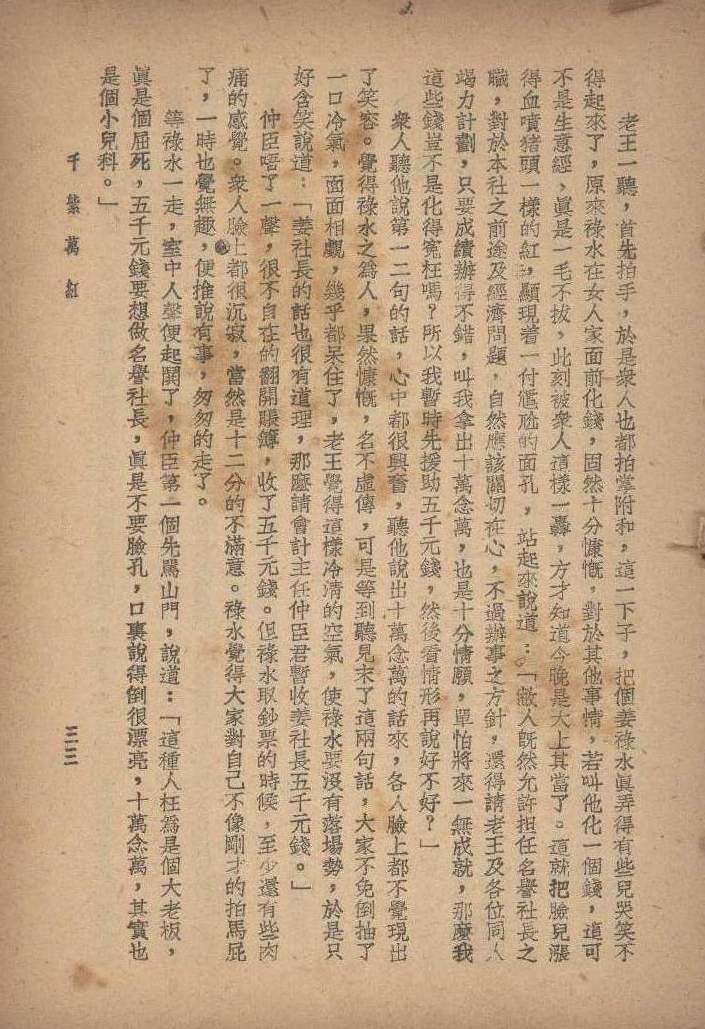 老王一聽，首先拍手，於是衆人也都拍掌附和，這一下子，把個姜祿水眞弄得有些兒哭笑不
得起來了，原來祿水在女人家面前化錢，固然十分慷慨，對於其他事情，若叫他化一個錢，這可
不是生意經，眞是一毛不拔，此刻被衆人這樣一轟，方才知道今晚是大上其當了。這就把臉兒漲
得血噴猪頭一樣的紅，顯現着一付尷尬的面孔，站起來說道：「敝人旣然允許担任名譽社長之
職，對於本社之前途及經濟問題，自然應該關切在心，不過辦事之方針，還得請老王及各位同人
竭力計劃，只要成績辦得不錯，叫我拿出十萬念萬，也是十分情願，單怕將來一無成就，那麼我
這些錢豈不是化得寃枉嗎？所以我暫時先援助五千元錢，然後看情形再說好不好？」
衆人聽他說第一二句的話，心中都很興奮，聽他說出十萬念萬的話來，各人臉上都不覺現出
了笑容。覺得祿水之爲人，果然慷慨，名不虛傳，可是等到聽見末了這兩句話，大家不免倒抽了
一口冷氣，面面相覷，幾乎都呆住了，老王覺得這樣冷清的空氣，使祿水要沒有落場勢，於是只
好含笑說道：「姜社長的話也很有道理，那麼請會計主任仲臣君暫收姜社長五千元錢。」
仲臣唔了一聲，很不自在的翻開賬簿，收了五千元錢。但祿水取鈔票的時候，至少還有些肉
痛的感覺。衆人臉上都很沉寂，當然是十二分的不滿意。祿水覺得大家對自己不像剛才的拍馬屁
了，一時也覺無趣，便推說有事，匆匆的走了。
等祿水一走，室中人聲便起鬨了，仲臣第一個先駡山門，說道：「這種人枉爲是個大老板，
眞是個屈死，五千元錢要想做名譽社長，眞是不要臉孔，口裏說得倒很漂亮，十萬念萬，其實也
是個小兒科。」
千紫萬紅
三三